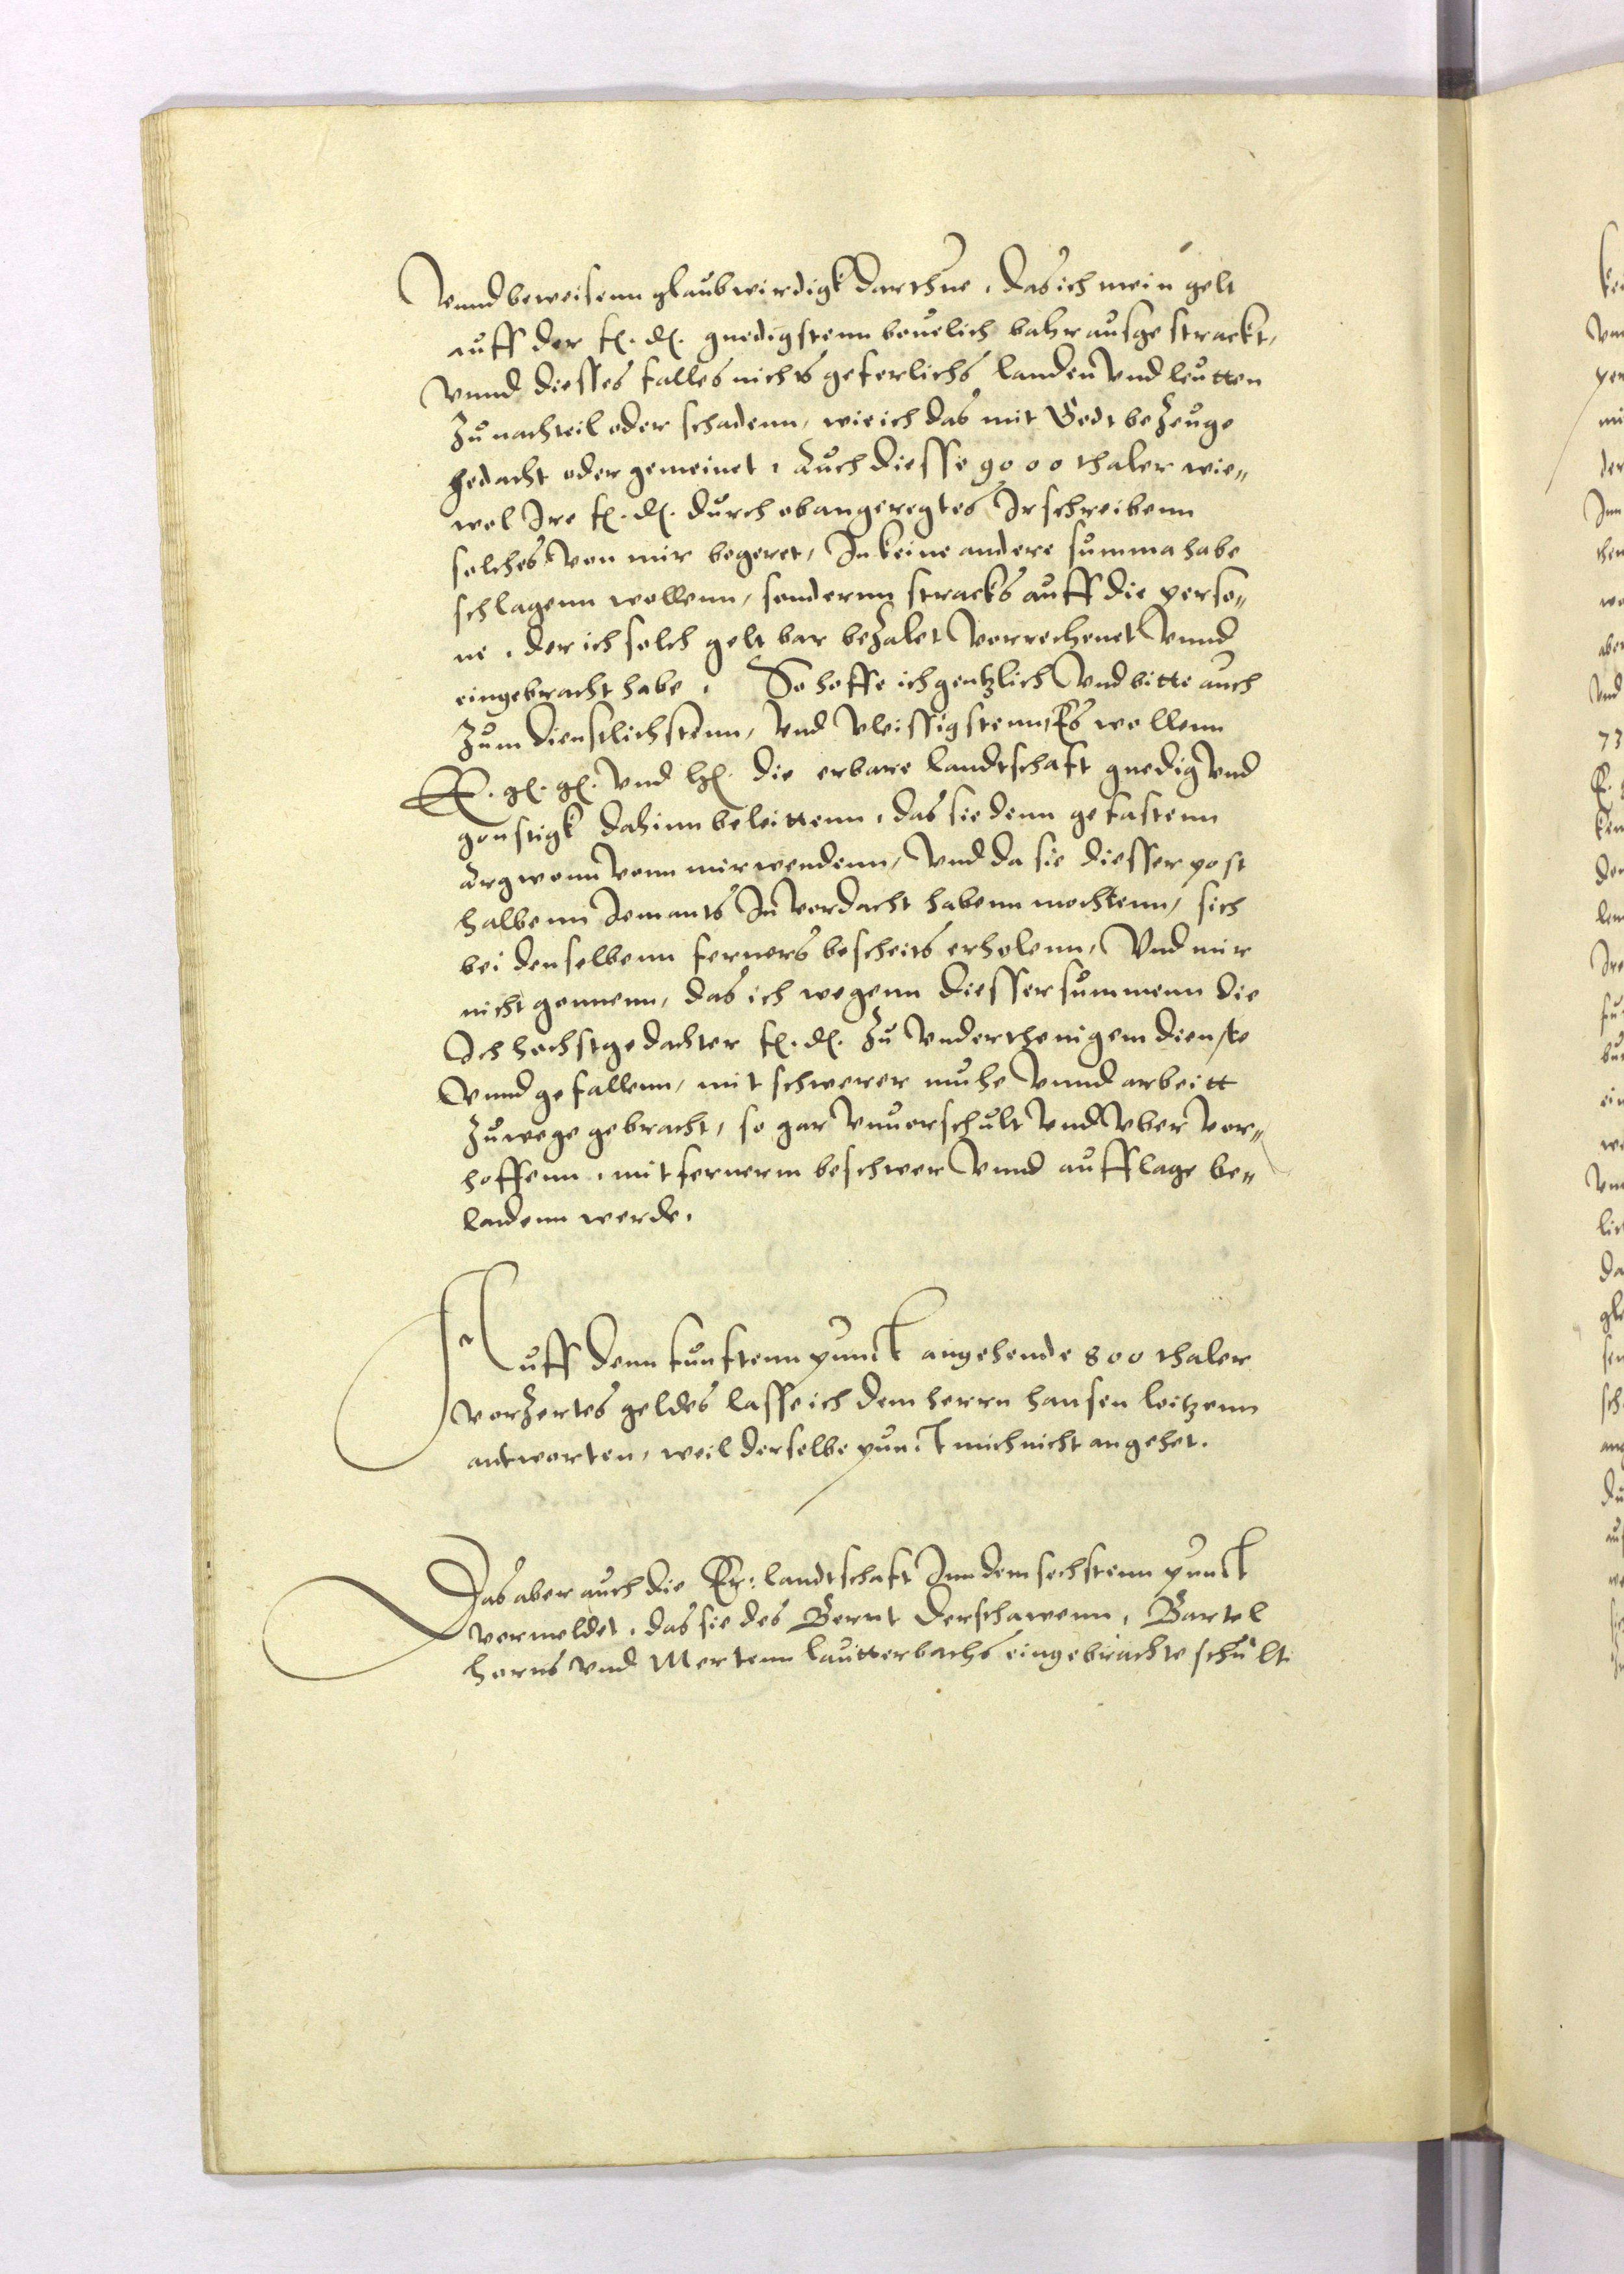 Vnnd beweisenn glaubwirdigk darthue, das ich mein gelt
auff der f. d. gnedigstenn beuelich bahr ausgestrackt,
vnnd diesses falles nichts geferlichs landen vnd leutten
zu nachteil oder schadenn, wie ich das mit Gedt bezeuge
gedacht oder gemeinet, Auch diesse 9000 thaler wie„
wol Ire f. d. durch obangeregtes Ir schreibenn
solches von mir begeret, In keine andere summa habe
schlagenn wollenn, sondernn stracks auff die perso„
ne, der ich solch gelt bar bezalet vorrechenet vnnd
eingebracht habe, So hoffe ich gentzlich vnd bitte auch
zum dienstlichstenn, vnd vleissigstenn, Es wollenn
E. g. g. vnd h. die erbare landtschaft gnedig vnd
gonstigk dahinn beleittenn, das sie denn gefastenn
Argwonn vonn mir wendenn, vnd da sie diesser post
halbenn Iemants In verdacht habenn mochtenn, sich
bei denselbenn ferners bescheits erholenn, Vnd mir
nicht gonnenn, das ich wegenn diesser summenn die
Ich hochstgedachter f. d. zu vnderthenigem dienste
vnnd gefallenn, mit schwerer muhe vnnd arbeitt
zuwege gebracht, so gar vnuorschult vnd vber vor„
hoffenn, mit fernerm beschwer vnnd aufflage be„
ladenn werde,
Auff denn funftenn punct angehende 800 thaler
vorzertes geldes lasse ich dem herrn hansen leitzenn
antworten, weil derselbe punct mich nicht angehet.
Das aber auch die Er: landtschaft Inn dem sechstenn punct
vermeldet, das sie des Bernt Derschawenn, Bartel
horns vnd Mertenn lautterbachs eingebrachte schult